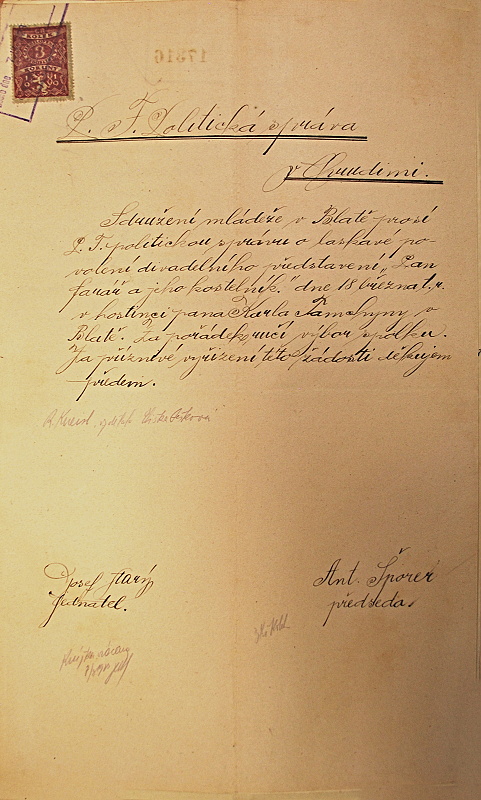 KOLEK
3
KORUNY
17316
P. T. Politická správa
v Chrudimi.
Sdružení mládeže v Blatě prosí
P. T. politickou správu o laskavé po-
volení divadelního představení „Pan
farář a jeho kostelník." dne 18 března t. r.
v hostinci pana Karla Tamchyny v
Blatě. Za pořádek ručí výbor spolku.
Za příznivé vyřízení této žádosti děkujem
předem.
Josef Starý
jednatel.
Ant. Šporer
předseda